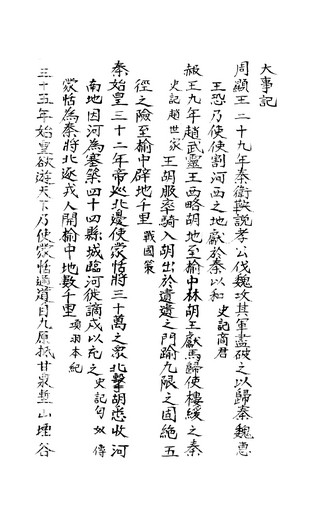 大事記
周顯王二十九年秦衛鞅說孝公伐魏攻其軍盡破之以歸秦魏惠
王恐乃使使割河西之地獻於秦以和 史記商君
赧王九年趙武靈王西略胡地至榆中林胡王獻馬歸使樓緩之秦
史記趙世家 王胡服率騎入胡出於遺遺之門踰九限之固絶五
徑之險至榆中辟地千里 戰國策
秦始皇三十二年帝巡北邊使蒙恬將三十萬之衆北擊胡悉收河
南地因河為塞築四十四縣城臨河徙謫戍以充之 史記匈奴傳
蒙恬為秦將北逐戎人開榆中地數千里 項羽本紀
三十五年始皇欲遊天下乃使蒙恬通道自九原抵甘泉塹山堙谷